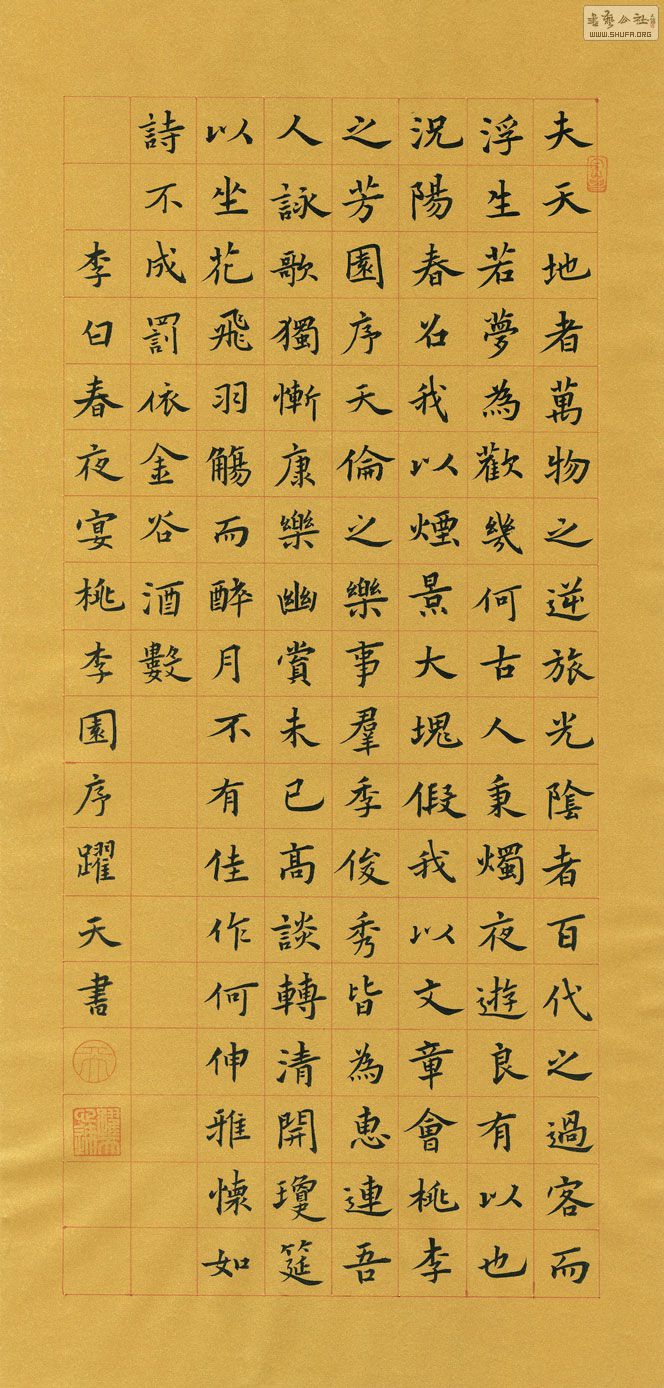 夫天地者萬物之逆旅光陰者百代之過客而
浮生若夢為歡幾何古人秉燭夜遊良有以也
況陽春召我以煙景大塊假我以文章會桃李
之芳園序天倫之樂事羣季俊秀皆為惠連吾
人詠歌獨慚康樂幽賞未已高談轉清開瓊筵
以坐花飛羽觴而醉月不有佳作何伸雅懷如
詩不成罰依金谷酒數
李白春夜宴桃李園序躍天書
书艺公社
WWW.SHUFA.ORG